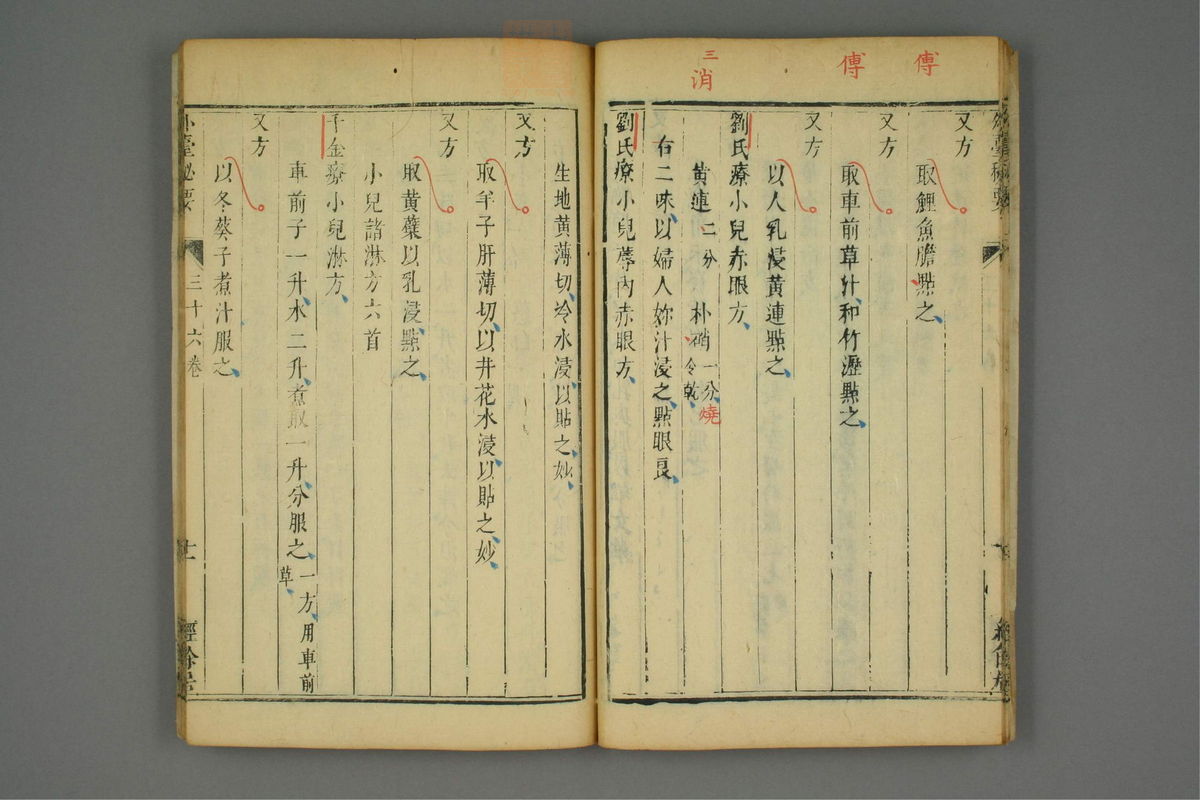 傅
傅
三
消
又方
取鯉魚膽點之
又方
取車前草汁和竹瀝點之
又方
以人乳浸黃連點之
劉氏療小兒赤眼方
黃連二分 朴硝一分令乾
燒
右二味以婦人妳汁浸之點眼良
劉氏療小兒蓐內赤眼方
生地黃薄切冷水浸以貼之妙
又方
取羊子肝薄切以井花水浸以貼之妙
又方
取黃蘗以乳浸點之
小兒諸淋方六首
千金療小兒淋方
車前子一升水二升煮取一升分服之一方用車前草
又方
以冬葵子煮汁服之
外臺秘要
三十六卷
十一
經餘居